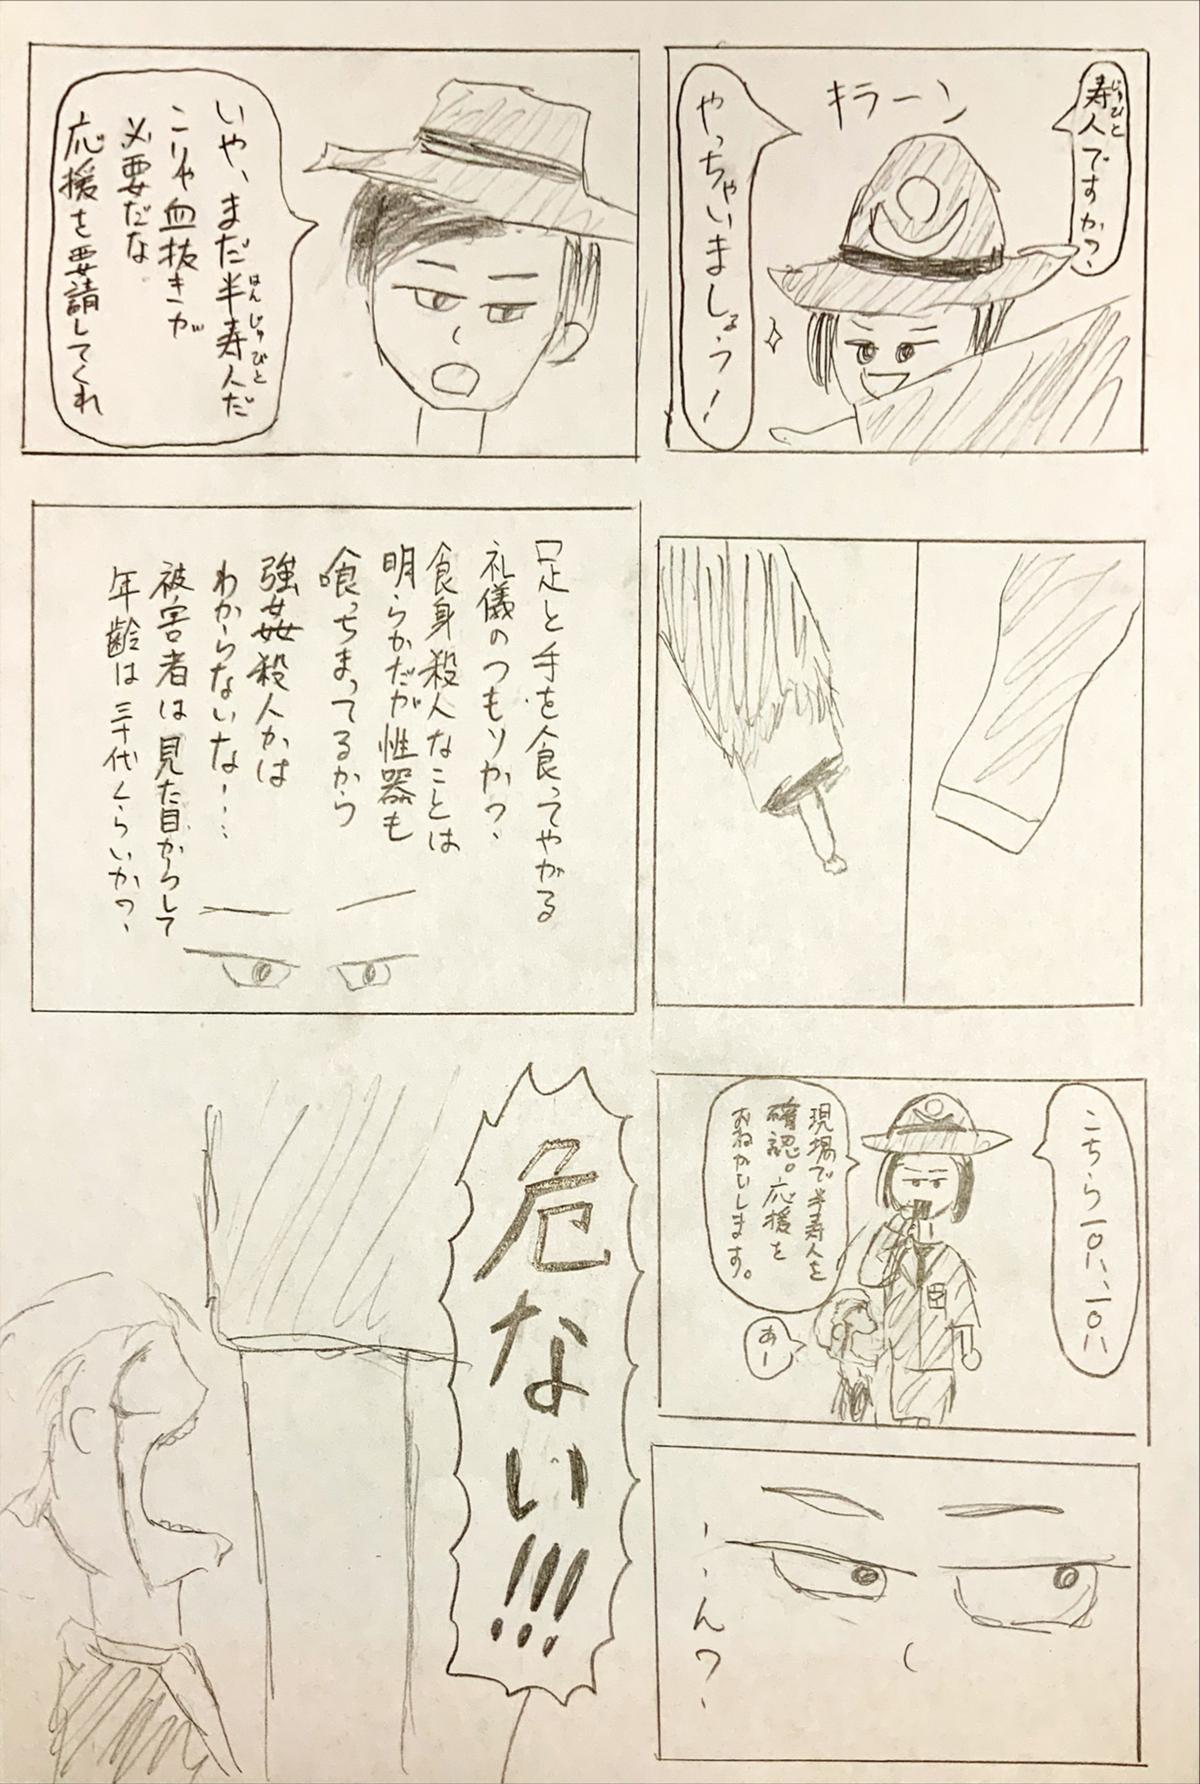 寿人ですか？
じゅびと
キラーン
やっちゃいましょう！
いや、まだ半寿人だ
はんじゅびと
こりゃ血抜きが
必要だな
応援を要請してくれ
足と手を食ってやがる
礼儀のつもりか？
食身殺人なことは
明らかだが性器も
喰っちまってるから
強姦殺人かは
わからないな…
被害者は見た目からして
年齢は三十代くらいか？
こちら一〇八、一〇八
現場で半寿人を
確認。応援を
おねがいします。
あー
…ん？
危ない!!!